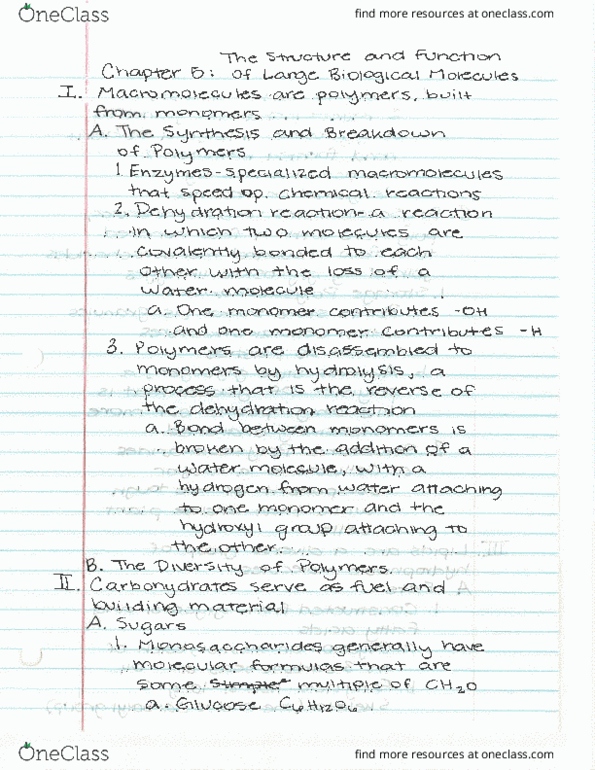 OneClass
find more resources at oneclass.com
The Structure and Function
Chapter 5: of Large Biological Molecules
I. Macromolecules are polymers, built
from monomers
A. The Synthesis and Breakdown
of Polymers
1. Enzymes-specialized macromolecules
that speed up chemical reactions
2. Dehydration reaction-a reaction
in which two molecules are
covalently bonded to each
other with the loss of a
water molecule
a. One monomer contributes -OH
and one monomer contributes -H
3. Polymers are disassembled to
monomers by hydrolysis, a
process that is the reverse of
the dehydration reaction
a. Bond between monomers is
broken by the addition of a
water molecule, with a
hydrogen from water attaching
to one monomer and the
hydroxyl group attaching to
the other.
B. The Diversity of Polymers
II. Carbohydrates serve as fuel and
building material
A. Sugars
1. Monosaccharides generally have
molecular formulas that are
some simple multiple of CH2O
a. Glucose C6H12O6
OneClass
find more resources at oneclass.com